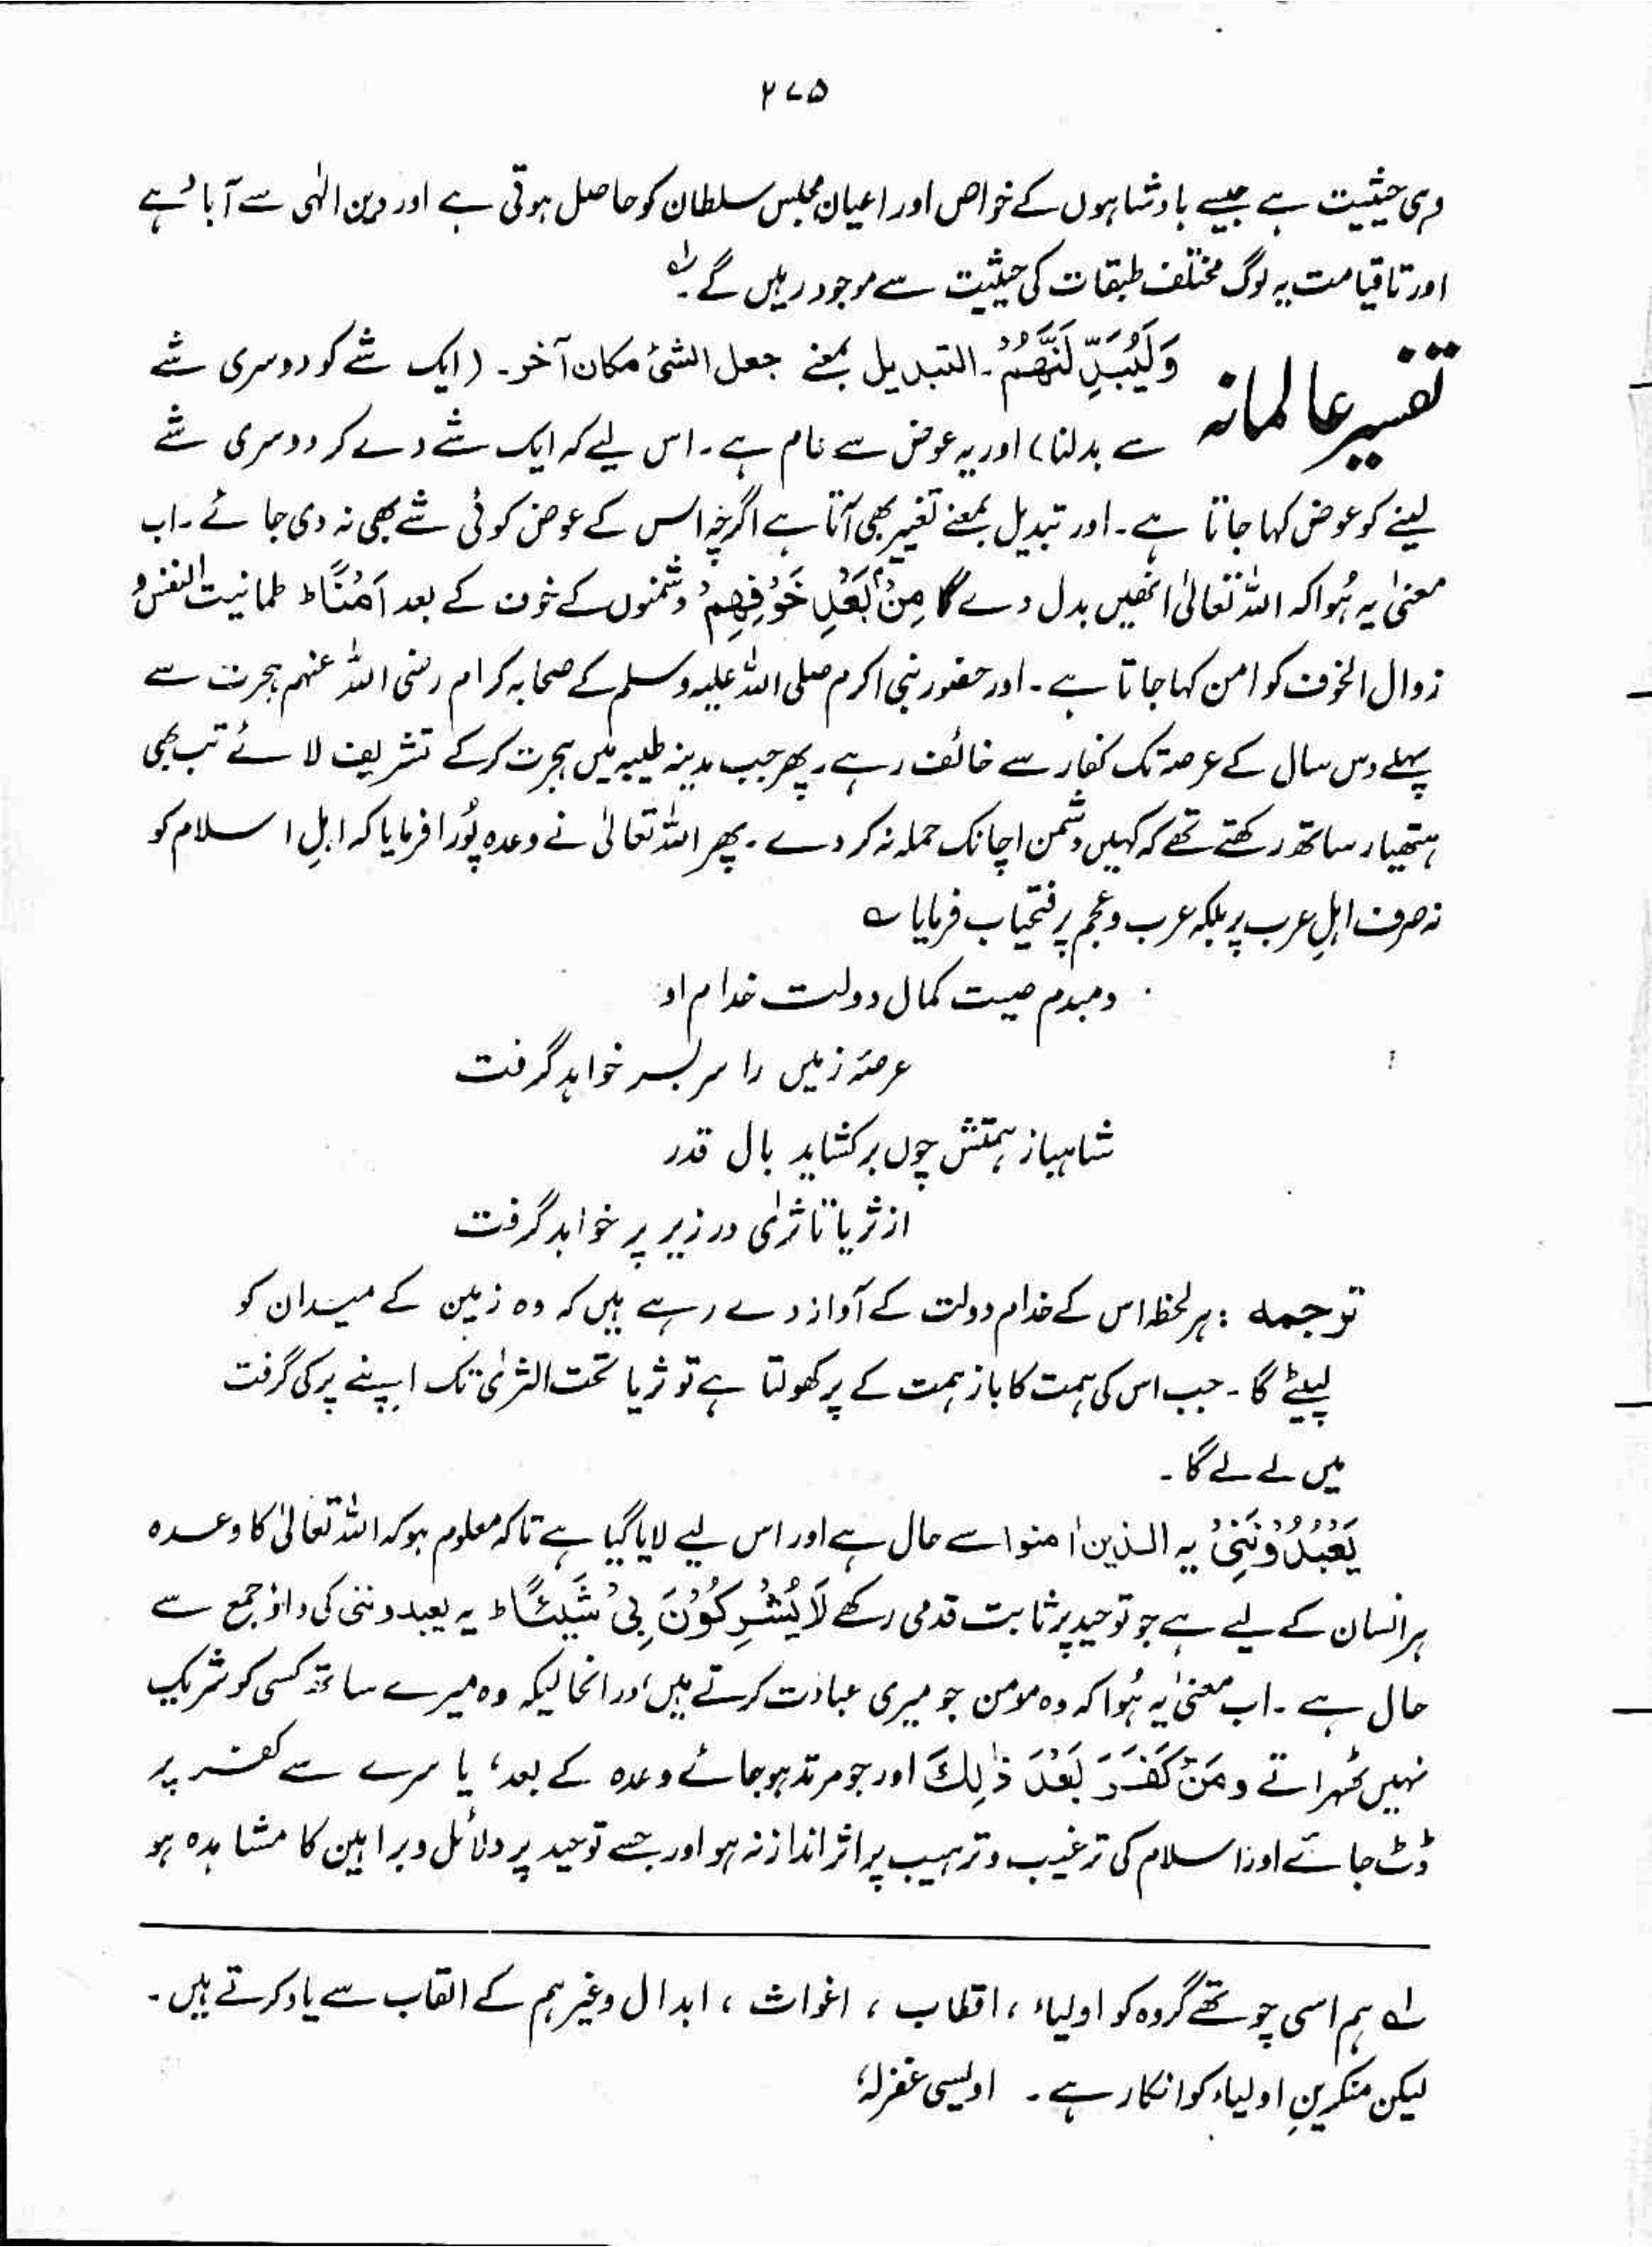 ۲۷۵
وہی حیثیت ہے جیسے بادشاہوں کے خواص اور اعیان مجلس سلطان کو حاصل ہوتی ہے اور دین الٰہی سے آباد ہے
اور تا قیامت یہ لوگ مختلف طبقات کی حیثیت سے موجود رہیں گے۔ لہ
تفسیر عالمانہ وَلَیُبَدِّلَنَّهُمْ۔ التبدیل بمعنے جعل الشئ مکان آخر۔ (ایک شے کو دوسری شے
سے بدلنا) اور یہ عوض سے عام ہے۔ اس لیے کہ ایک شے دے کر دوسری شے
لینے کو عوض کہا جاتا ہے۔ اور تبدیل بمعنے تغییر بھی آتا ہے اگرچہ اس کے عوض کوئی شے بھی نہ دی جائے۔ اب
معنیٰ یہ ہُوا کہ اللہ تعالیٰ انھیں بدل دے گا مِنْۢ بَعْدِ خَوْفِهِمْ دشمنوں کے خوف کے بعد اَمْنًا ؕ طمانیت النفس و
زوال الخوف کو امن کہا جاتا ہے۔ اور حضور نبی اکرم صلی اللہ علیہ وسلم کے صحابہ کرام رضی اللہ عنہم ہجرت سے
پہلے دس سال کے عرصہ تک کفار سے خائف رہے۔ پھر جب مدینہ طیبہ میں ہجرت کر کے تشریف لائے تب بھی
ہتھیار ساتھ رکھتے تھے کہ کہیں دشمن اچانک حملہ نہ کر دے۔ پھر اللہ تعالیٰ نے وعدہ پُورا فرمایا کہ اہلِ اسلام کو
نہ صرف اہلِ عرب پر بلکہ عرب و عجم پر فتحیاب فرمایا ؎
دمبدم صیت کمال دولت خدام او
عرصۂ زمیں را سر بسر خواہد گرفت
شاہباز ہمتش چوں برکشاید بال قدر
از ثریا تا ثریٰ در زیر پر خواہد گرفت
ترجمہ : ہر لحظہ اس کے خدام دولت کے آواز دے رہے ہیں کہ وہ زمین کے میدان کو
لپیٹے گا۔ جب اس کی ہمت کا باز ہمت کے پر کھولتا ہے تو ثریا تحت الثریٰ تک اپنے پر کی گرفت
میں لے لے گا۔
یَعْبُدُوْنَنِیْ یہ الذین اٰمنوا سے حال ہے اور اس لیے لایا گیا ہے تاکہ معلوم ہو کہ اللہ تعالیٰ کا وعدہ
ہر انسان کے لیے ہے جو توحید پر ثابت قدمی رکھے لَا یُشْرِکُوْنَ بِیْ شَیْئًا ؕ یہ یعبدوننی کی واؤ جمع سے
حال ہے۔ اب معنیٰ یہ ہُوا کہ وہ مومن جو میری عبادت کرتے ہیں درانحالیکہ وہ میرے ساتھ کسی کو شریک
نہیں ٹھہراتے وَمَنْ کَفَرَ بَعْدَ ذٰلِكَ اور جو مرتد ہو جائے وعدہ کے بعد، یا سرے سے کفر پر
ڈٹ جائے اور اسلام کی ترغیب و ترہیب پر اثر انداز نہ ہو اور جسے توحید پر دلائل و براہین کا مشاہدہ ہو
لہ ہم اسی چوتھے گروہ کو اولیاء ، اقطاب ، اغواث ، ابدال وغیرہم کے القاب سے یاد کرتے ہیں۔
لیکن منکرینِ اولیاء کو انکار ہے۔ اویسی غفرلہٗ